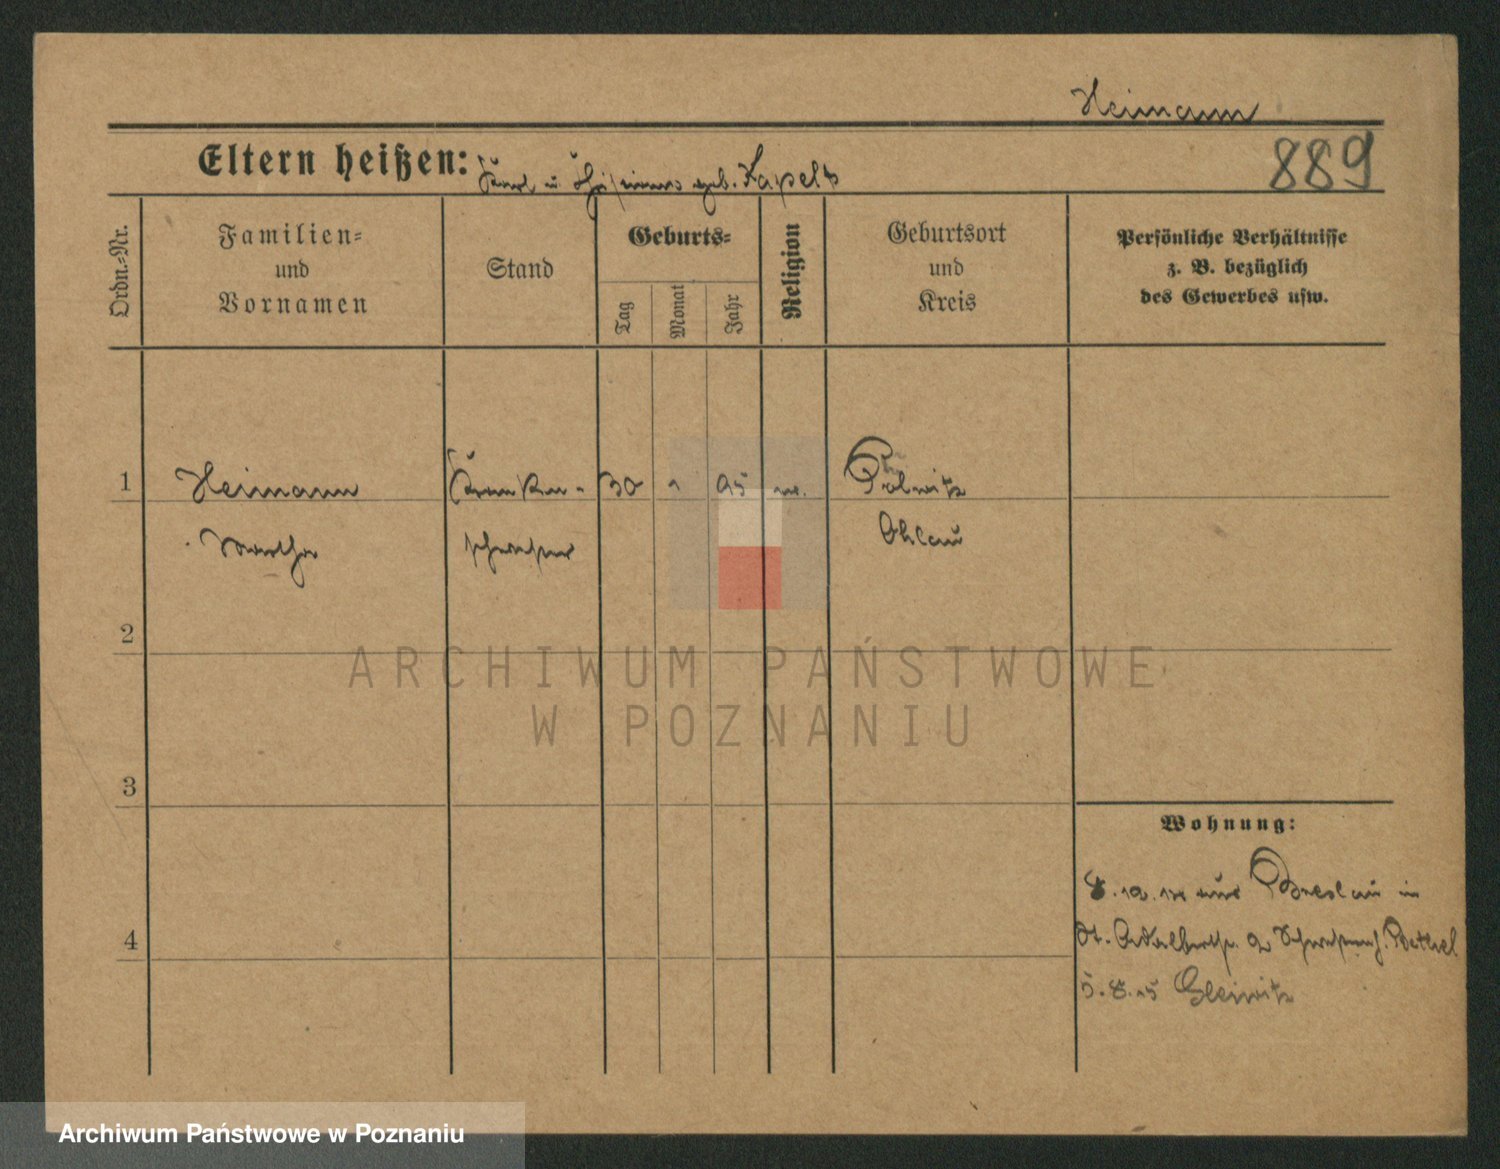 Heimann
889
Eltern heißen: Karl u. geb. Kapelt
Ordn.-Nr.
Familien-
und
Vornamen
Stand
Geburts-
Tag
Monat
Jahr
Religion
Geburtsort
und
Kreis
Persönliche Verhältnisse
z. B. bezüglich
des Gewerbes usw.
1 Heimann Kranken- 30 1 95
Martha schwester Ohlau
2
3
4
Wohnung:
aus Breslau in
St. Adalbertstr. 2 Bethel
5.8.15 Gleiwitz
ARCHIWUM PAŃSTWOWE
W POZNANIU
Archiwum Państwowe w Poznaniu